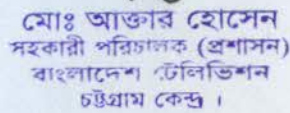 মোঃ আক্তার হোসেন
সহকারী পরিচালক (প্রশাসন)
বাংলাদেশ টেলিভিশন
চট্টগ্রাম কেন্দ্র ।